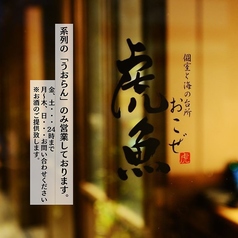 個室と海の台所
おこぜ
虎魚
虎
系列の「うおらん」のみ営業しております。
金、土・・・24時まで
月〜木、日・・お問い合わせください
※お酒のご提供致します。